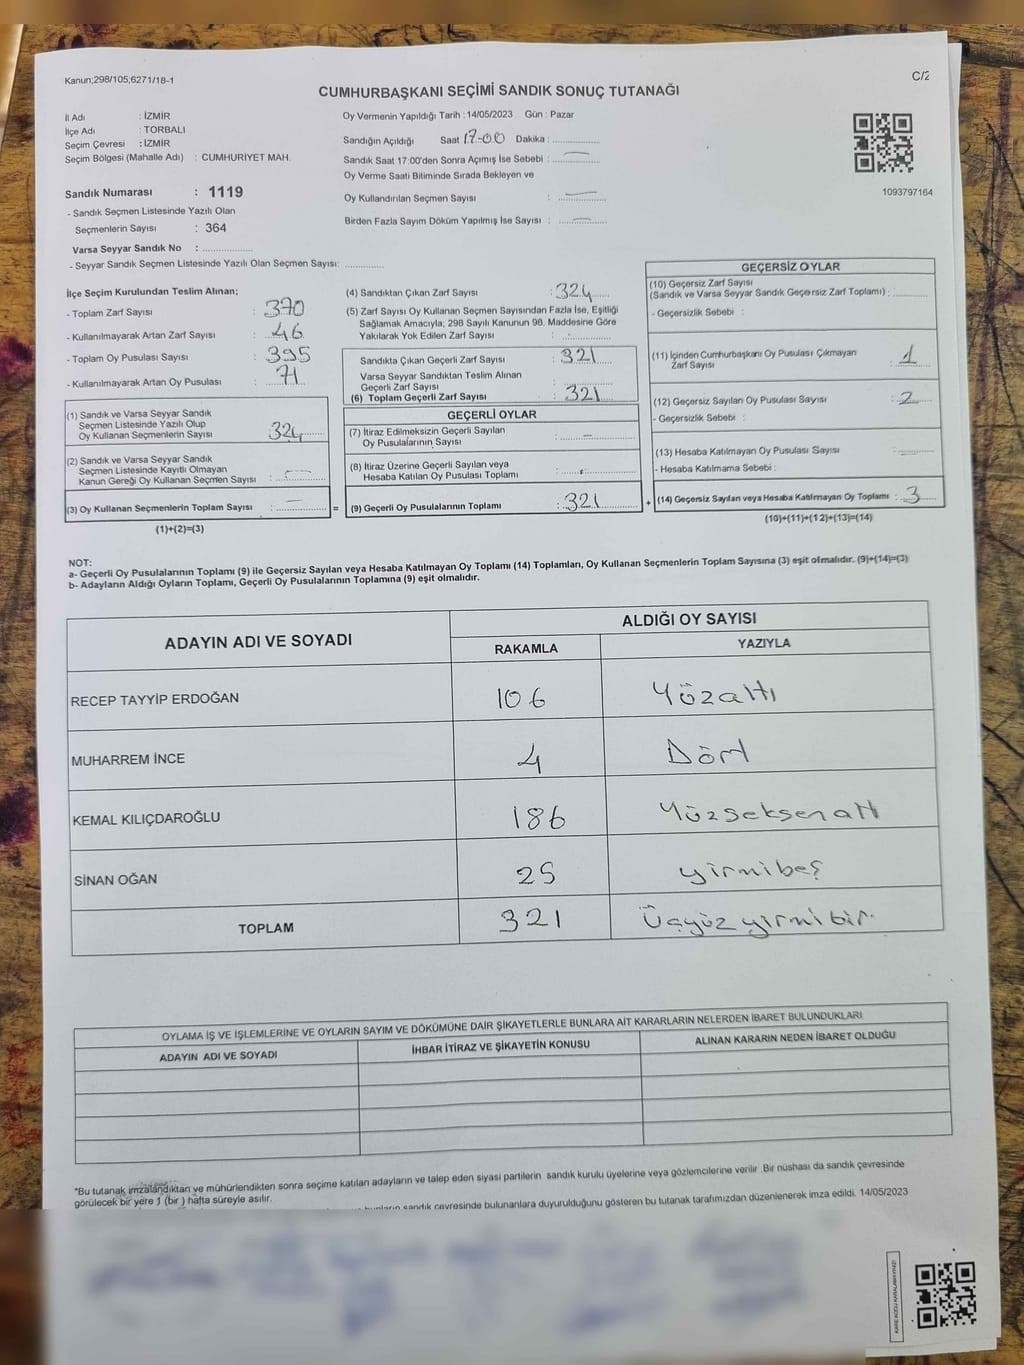 Kanun;298/105;6271/18-1
C/2
CUMHURBAŞKANI SEÇİMİ SANDIK SONUÇ TUTANAĞI
İl Adı : İZMİR
İlçe Adı : TORBALI
Seçim Çevresi : İZMİR
Seçim Bölgesi (Mahalle Adı) : CUMHURİYET MAH.
Sandık Numarası : 1119
- Sandık Seçmen Listesinde Yazılı Olan
Seçmenlerin Sayısı : 364
Varsa Seyyar Sandık No : ..............
- Seyyar Sandık Seçmen Listesinde Yazılı Olan Seçmen Sayısı: ............
Oy Vermenin Yapıldığı Tarih : 14/05/2023 Gün : Pazar
Sandığın Açıldığı Saat 17.00 Dakika : ..............
Sandık Saat 17:00'den Sonra Açımış İse Sebebi : ..............
Oy Verme Saati Bitiminde Sırada Bekleyen ve
Oy Kullandırılan Seçmen Sayısı : ..............
Birden Fazla Sayım Döküm Yapılmış İse Sayısı : ..............
1093797164
İlçe Seçim Kurulundan Teslim Alınan;
- Toplam Zarf Sayısı : 370
- Kullanılmayarak Artan Zarf Sayısı : 46
- Toplam Oy Pusulası Sayısı : 395
- Kullanılmayarak Artan Oy Pusulası : 71
(1) Sandık ve Varsa Seyyar Sandık
Seçmen Listesinde Yazılı Olup
Oy Kullanan Seçmenlerin Sayısı : 324
(2) Sandık ve Varsa Seyyar Sandık
Seçmen Listesinde Kayıtlı Olmayan
Kanun Gereği Oy Kullanan Seçmen Sayısı : -
(3) Oy Kullanan Seçmenlerin Toplam Sayısı : -
(1)+(2)=(3)
(4) Sandıktan Çıkan Zarf Sayısı : 324
(5) Zarf Sayısı Oy Kullanan Seçmen Sayısından Fazla İse, Eşitliği
Sağlamak Amacıyla; 298 Sayılı Kanunun 98. Maddesine Göre
Yakılarak Yok Edilen Zarf Sayısı : ..............
Sandıkta Çıkan Geçerli Zarf Sayısı : 321
Varsa Seyyar Sandıktan Teslim Alınan
Geçerli Zarf Sayısı : ..............
(6) Toplam Geçerli Zarf Sayısı : 321
GEÇERLİ OYLAR
(7) İtiraz Edilmeksizin Geçerli Sayılan
Oy Pusulalarının Sayısı : -
(8) İtiraz Üzerine Geçerli Sayılan veya
Hesaba Katılan Oy Pusulası Toplamı : ..............
= (9) Geçerli Oy Pusulalarının Toplamı : 321
GEÇERSİZ OYLAR
(10) Geçersiz Zarf Sayısı
(Sandık ve Varsa Seyyar Sandık Geçersiz Zarf Toplamı) : ............
- Geçersizlik Sebebi :
(11) İçinden Cumhurbaşkanı Oy Pusulası Çıkmayan
Zarf Sayısı : 1
(12) Geçersiz Sayılan Oy Pusulası Sayısı : 2
- Geçersizlik Sebebi :
(13) Hesaba Katılmayan Oy Pusulası Sayısı : ............
- Hesaba Katılmama Sebebi :
+ (14) Geçersiz Sayılan veya Hesaba Katılmayan Oy Toplamı : 3
(10)+(11)+(12)+(13)=(14)
NOT:
a- Geçerli Oy Pusulalarının Toplamı (9) ile Geçersiz Sayılan veya Hesaba Katılmayan Oy Toplamı (14) Toplamları, Oy Kullanan Seçmenlerin Toplam Sayısına (3) eşit olmalıdır. (9)+(14)=(3)
b- Adayların Aldığı Oyların Toplamı, Geçerli Oy Pusulalarının Toplamına (9) eşit olmalıdır.
ADAYIN ADI VE SOYADI
ALDIĞI OY SAYISI
RAKAMLA YAZIYLA
RECEP TAYYİP ERDOĞAN 106 Yüzaltı
MUHARREM İNCE 4 Dört
KEMAL KILIÇDAROĞLU 186 Yüzseksenaltı
SİNAN OĞAN 25 yirmibeş
TOPLAM 321 Üçyüz yirmi bir.
OYLAMA İŞ VE İŞLEMLERİNE VE OYLARIN SAYIM VE DÖKÜMÜNE DAİR ŞİKAYETLERLE BUNLARA AİT KARARLARIN NELERDEN İBARET BULUNDUKLARI
ADAYIN ADI VE SOYADI İHBAR İTİRAZ VE ŞİKAYETİN KONUSU ALINAN KARARIN NEDEN İBARET OLDUĞU
*Bu tutanak imzalandıktan ve mühürlendikten sonra seçime katılan adayların ve talep eden siyasi partilerin sandık kurulu üyelerine veya gözlemcilerine verilir. Bir nüshası da sandık çevresinde
görülecek bir yere 1 (bir) hafta süreyle asılır.
bunların sandık çevresinde bulunanlara duyurulduğunu gösteren bu tutanak tarafımızdan düzenlenerek imza edildi. 14/05/2023